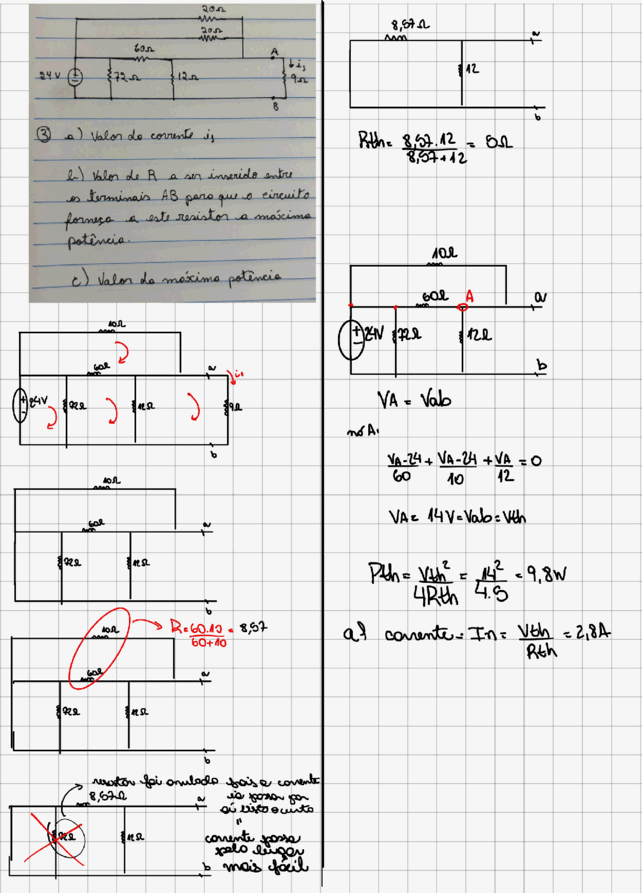 20Ω
20Ω
60Ω
A
24V
72Ω
12Ω
↓ i₁
9Ω
B
③ a) Valor da corrente i₁
b) Valor de R a ser inserido entre
os terminais AB para que o circuito
forneça a este resistor a máxima
potência.
c) Valor da máxima potência
10Ω
60Ω
a
i₁
24V
72Ω
12Ω
9Ω
b
10Ω
60Ω
a
72Ω
12Ω
b
10Ω
R = 60.10 = 8,57
60+10
60Ω
a
72Ω
12Ω
b
resistor foi anulado pois a corrente
8,57Ω
a
ia passar por
aí visto o curto
"
72Ω
12Ω
corrente passa
pelo lugar
b
mais fácil
8,57Ω
a
12
b
Rth = 8,57.12 = 5Ω
8,57+12
10Ω
60Ω
A
a
24V
72Ω
12Ω
b
VA = Vab
nó A.
VA-24 + VA-24 + VA = 0
60 10 12
VA = 14V = Vab = Vth
Pth = Vth² = 14² = 9,8W
4Rth 4.5
a) corrente = In = Vth = 2,8A
Rth